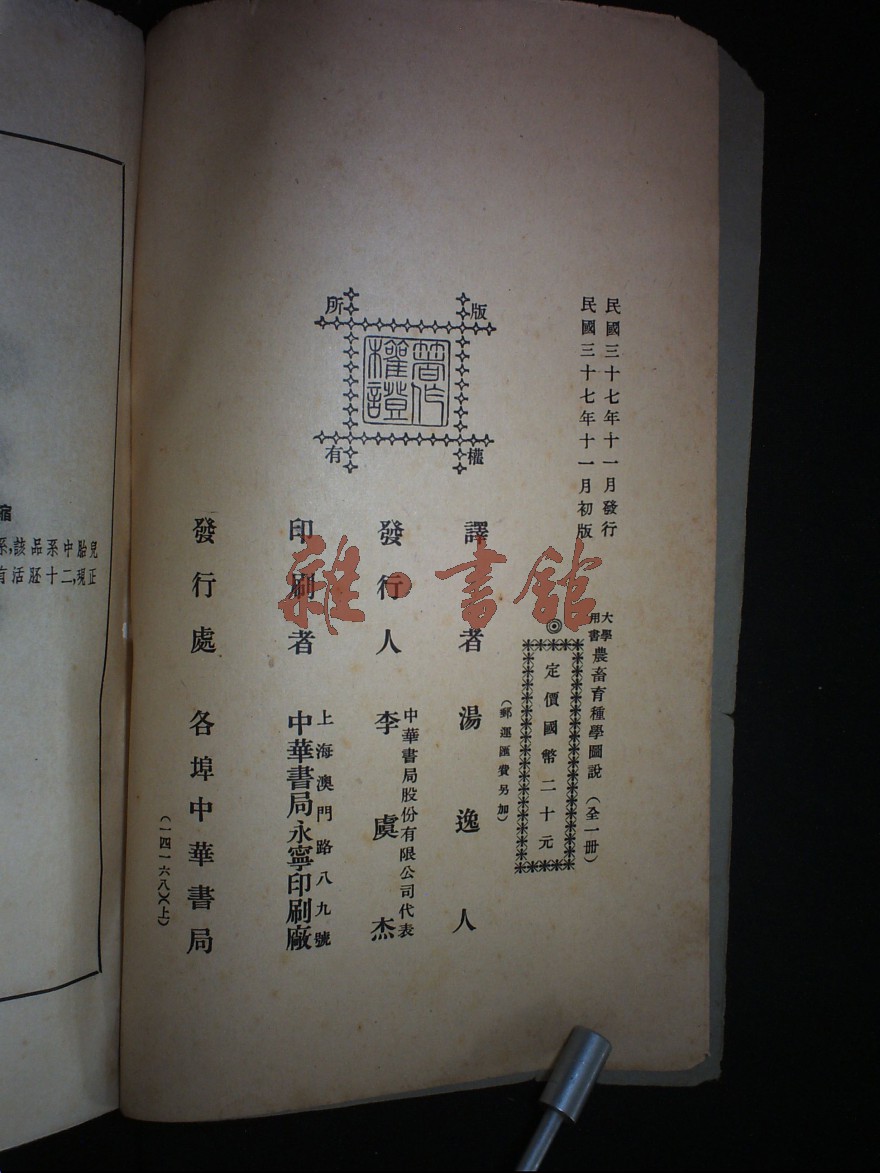 民國三十七年十一月發行
民國三十七年十一月初版
大學用書 農畜育種學圖說（全一册）
◎定價國幣二十元
（郵運匯費另加）
版權所有
著作權證
譯者 湯逸人
發行人 中華書局股份有限公司代表 李虞杰
印刷者 上海澳門路八九號 中華書局永寧印刷廠
發行處 各埠中華書局
（一四一六八）（上）
雜·書館
兒胎中系品該,系
正現,二十胚活有